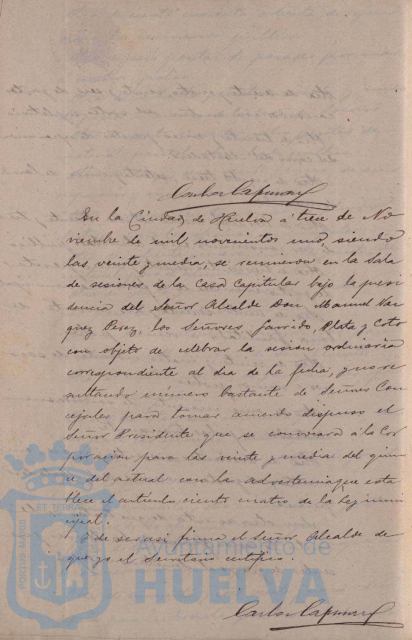 Carlos Capmany
En la Ciudad de Huelva á trece de No
viembre de mil novecientos uno, siendo
las veinte y media, se reunieron en la Sala
de sesiones de la Casa Capitular bajo la presi
dencia del Señor Alcalde Don Manuel Vaz
quez Perez, los Señores Garrido, Plata y Coto
con objeto de celebrar la sesión ordinaria
correspondiente al dia de la fecha, y no re
sultando número bastante de Señores Con
cejales para tomar acuerdo dispuso el
Señor Presidente que se convocara á la Cor
poración para las veinte y media del quin
ce del actual con la advertencia que esta
blece el artículo ciento cuatro de la ley muni
cipal.
Y de ser así firma el Señor Alcalde de
que yo el Secretario certifico.
Carlos Capmany
Ayuntamiento de
HUELVA